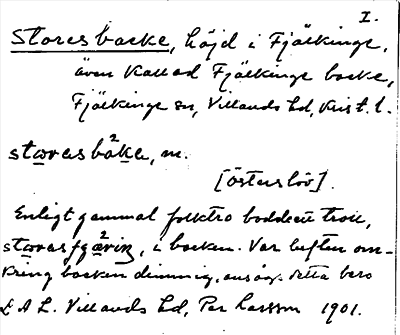 I.
Stores backe, höjd i Fjälkinge,
även kallad Fjälkinge backe,
Fjälkinge sn, Villands hd, Krist. l.
storas bake, m.
[Österslöv].
Enligt gammal folktro bodde ett troll,
i backen. Var luften om-
kring backen dimmig, ansågs detta bero
L A L. Villands hd, Per Larsson 1901.